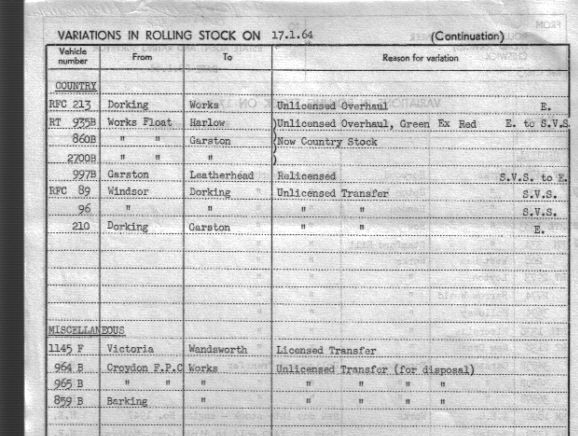 VARIATIONS IN ROLLING STOCK ON 17.1.64 (Continuation)
Vehicle number From To Reason for variation
COUNTRY
RFC 213 Dorking Works Unlicensed Overhaul E.
RT 935B Works Float Harlow )Unlicensed Overhaul, Green Ex Red E. to S.V.S.
860B " " Garston (Now Country Stock
2700B " " " )
997B Garston Leatherhead Relicensed S.V.S. to E.
RFC 89 Windsor Dorking Unlicensed Transfer S.V.S.
96 " " " " S.V.S.
210 Dorking Garston " " E.
MISCELLANEOUS
1145 F Victoria Wandsworth Licensed Transfer
964 B Croydon F.P.C Works Unlicensed Transfer (for disposal)
965 B " " " " " " "
859 B Barking " " " " "